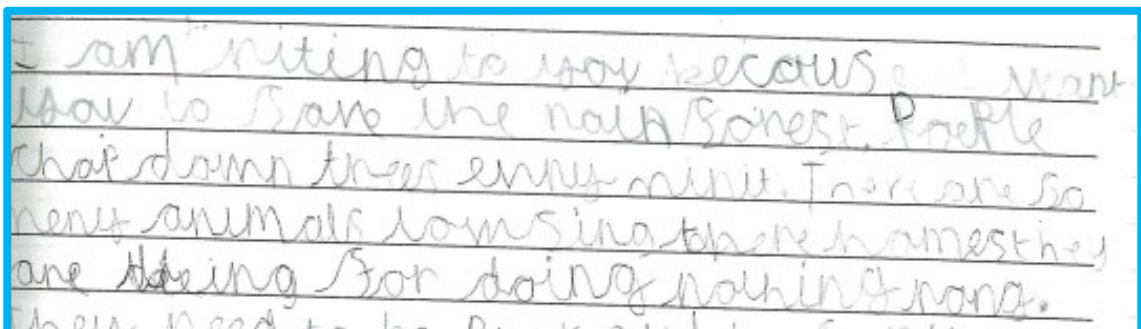 I am riting to you becous I want
you to save the rain forest. People
chop down trees evry minit. There are so
meny animals lowsing there homes they
are dieing for doing nothing rong.
They need to be